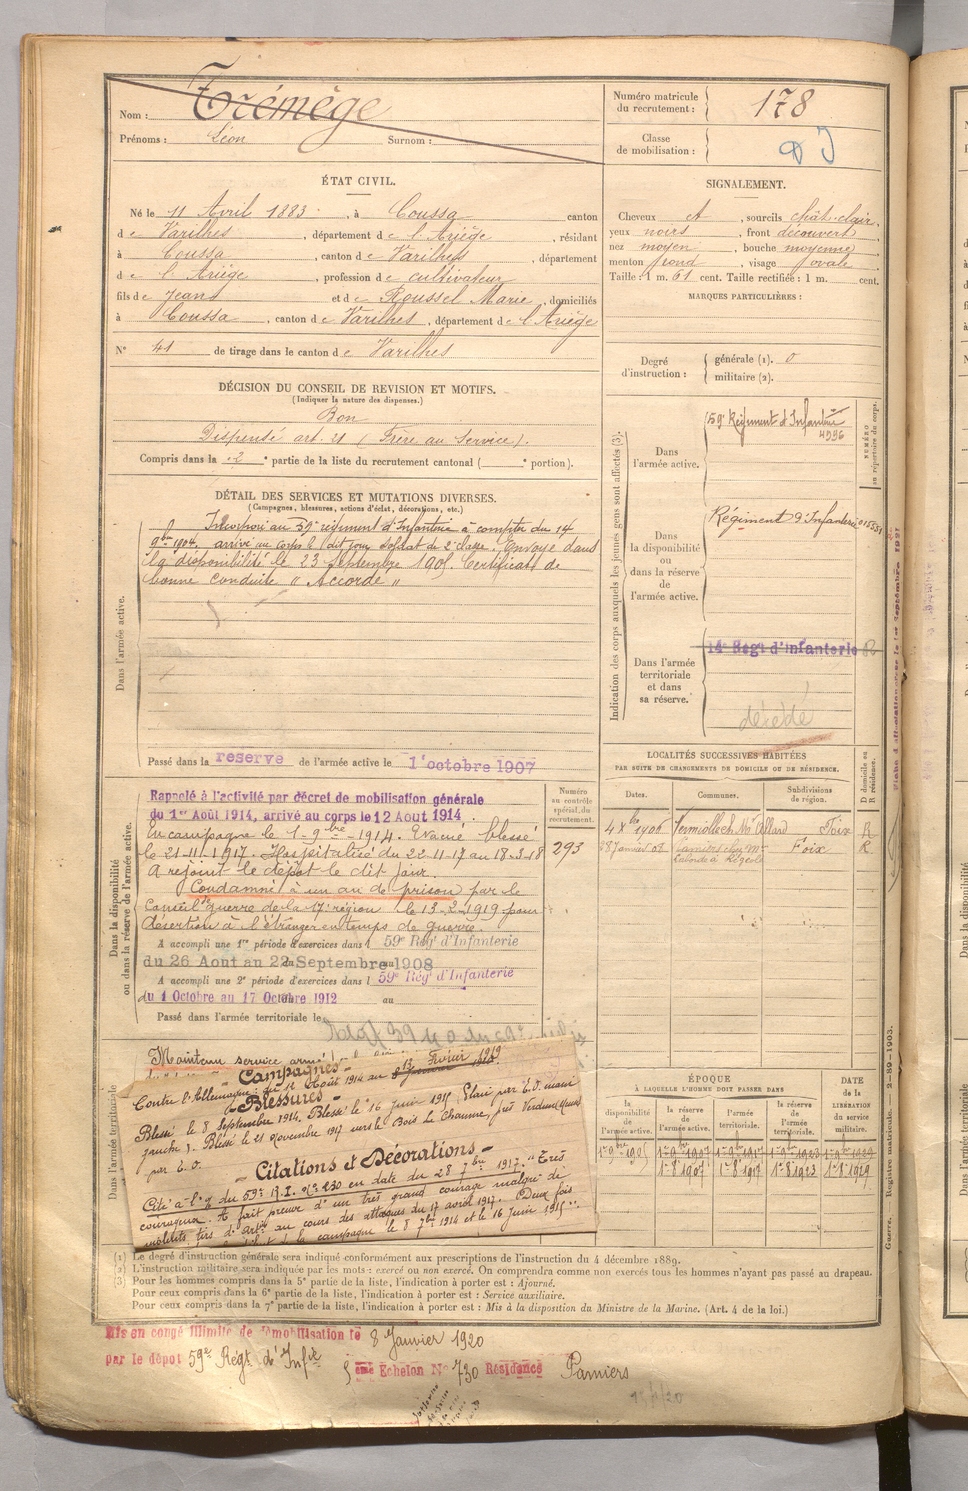 Nom : Trémège
Prénoms : Léon Surnom :
Numéro matricule du recrutement : 178
Classe de mobilisation :
ÉTAT CIVIL.
Né le 11 Avril 1883, à Coussa canton
de Varilhes, département de l'Ariège, résidant
à Coussa, canton de Varilhes, département
de l'Ariège, profession de cultivateur
fils de Jean et de Roussel Marie, domiciliés
à Coussa, canton de Varilhes, département de l'Ariège
N° 41 de tirage dans le canton de Varilhes
SIGNALEMENT.
Cheveux et, sourcils chât-clair,
yeux noirs, front découvert,
nez moyen, bouche moyenne,
menton rond, visage ovale
Taille : 1 m. 61 cent. Taille rectifiée : 1 m. cent.
MARQUES PARTICULIÈRES :
Degré d'instruction : générale (1). 0
militaire (2).
DÉCISION DU CONSEIL DE REVISION ET MOTIFS.
(Indiquer la nature des dispenses.)
Bon
Dispensé art. 21 (Frère au Service).
Compris dans la 2e partie de la liste du recrutement cantonal ( e portion).
DÉTAIL DES SERVICES ET MUTATIONS DIVERSES.
(Campagnes, blessures, actions d'éclat, décorations, etc.)
Dans l'armée active.
Incorporé au 59e régiment d'Infanterie à compter du 14
9bre 1904. arrivé au corps le dit jour soldat de 2e classe. Envoyé dans
la disponibilité le 23 Septembre 1905. Certificat de
bonne conduite " Accordé "
Passé dans la reserve de l'armée active le 1er octobre 1907
Indication des corps auxquels les jeunes gens sont affectés (3).
NUMÉRO au répertoire du corps.
Dans l'armée active.
59e Régiment d'Infanterie
4996
Dans la disponibilité ou dans la réserve de l'armée active.
Régiment d'Infanterie
Dans l'armée territoriale et dans sa réserve.
14e Regt d'Infanterie
décédé
Dans la disponibilité ou dans la réserve de l'armée active.
Rappelé à l'activité par décret de mobilisation générale
du 1er Août 1914, arrivé au corps le 12 Aout 1914
En campagne le 1-9bre-1914. Evacué blessé
le 21-11-1917. Hospitalisé du 22-11-17 au 18-3-18
A rejoint le dépôt le dit jour.
Condamné à un an de prison par le
Conseil de guerre de la 17e région le 13-2-1919 pour
désertion à l'étranger en temps de guerre.
A accompli une 1re période d'exercices dans l 59e Rég' d'Infanterie
du 26 Aout au 22 Septembre 1908
A accompli une 2e période d'exercices dans l 59e Rég' d'Infanterie
du 1 Octobre au 17 Octobre 1912 au
Passé dans l'armée territoriale le
Numéro au contrôle spécial du recrutement.
293
LOCALITÉS SUCCESSIVES HABITÉES
PAR SUITE DE CHANGEMENTS DE DOMICILE OU DE RÉSIDENCE.
Dates. Communes. Subdivisions de région. D domicile ou R résidence.
Foix R
28 Janvier 08 Foix R
Dans l'armée territoriale
Maintenu service armé
- Campagnes -
Contre l'Allemagne : du 12 Août 1914 au 12 Février 1919
- Blessures -
Blessé le 8 Septembre 1914. Blessé le 16 Juin 1915 (Plaie par E.O. main
gauche). Blessé le 21 Novembre 1917 vers le Bois Le Chaume, près Verdun (Meuse)
par E. O.
- Citations et Décorations -
Cité à l'O. du 59e R.I. N° 230 en date du 28 7bre 1917. "Très
courageux. A fait preuve d'un très grand courage malgré de
violents tirs d'art. au cours des attaques du 17 avril 1917. Deux fois
de la campagne le 8 7bre 1914 et le 16 Juin 1915"
ÉPOQUE
À LAQUELLE L'HOMME DOIT PASSER DANS
la disponibilité de l'armée active. la réserve de l'armée active. l'armée territoriale. la réserve de l'armée territoriale. DATE de la LIBÉRATION du service militaire.
1er 9bre 1905 1er 9bre 1907 1er 9bre 1917 1er 9bre 1923 1er 9bre 1929
1-8-1907 1-8-1917 1-8-1923 1-8-1929
Guerre. — Registre matricule. — 2-89-1903.
(1) Le degré d'instruction générale sera indiqué conformément aux prescriptions de l'instruction du 4 décembre 1889.
(2) L'instruction militaire sera indiquée par les mots : exercé ou non exercé. On comprendra comme non exercés tous les hommes n'ayant pas passé au drapeau.
(3) Pour les hommes compris dans la 5e partie de la liste, l'indication à porter est : Ajourné.
Pour ceux compris dans la 6e partie de la liste, l'indication à porter est : Service auxiliaire.
Pour ceux compris dans la 7e partie de la liste, l'indication à porter est : Mis à la disposition du Ministre de la Marine. (Art. 4 de la loi.)
Mis en congé illimité de démobilisation le 8 Janvier 1920
par le dépôt 59e Régt. d'Infie 5eme Echelon N° 730 Résidence Pamiers